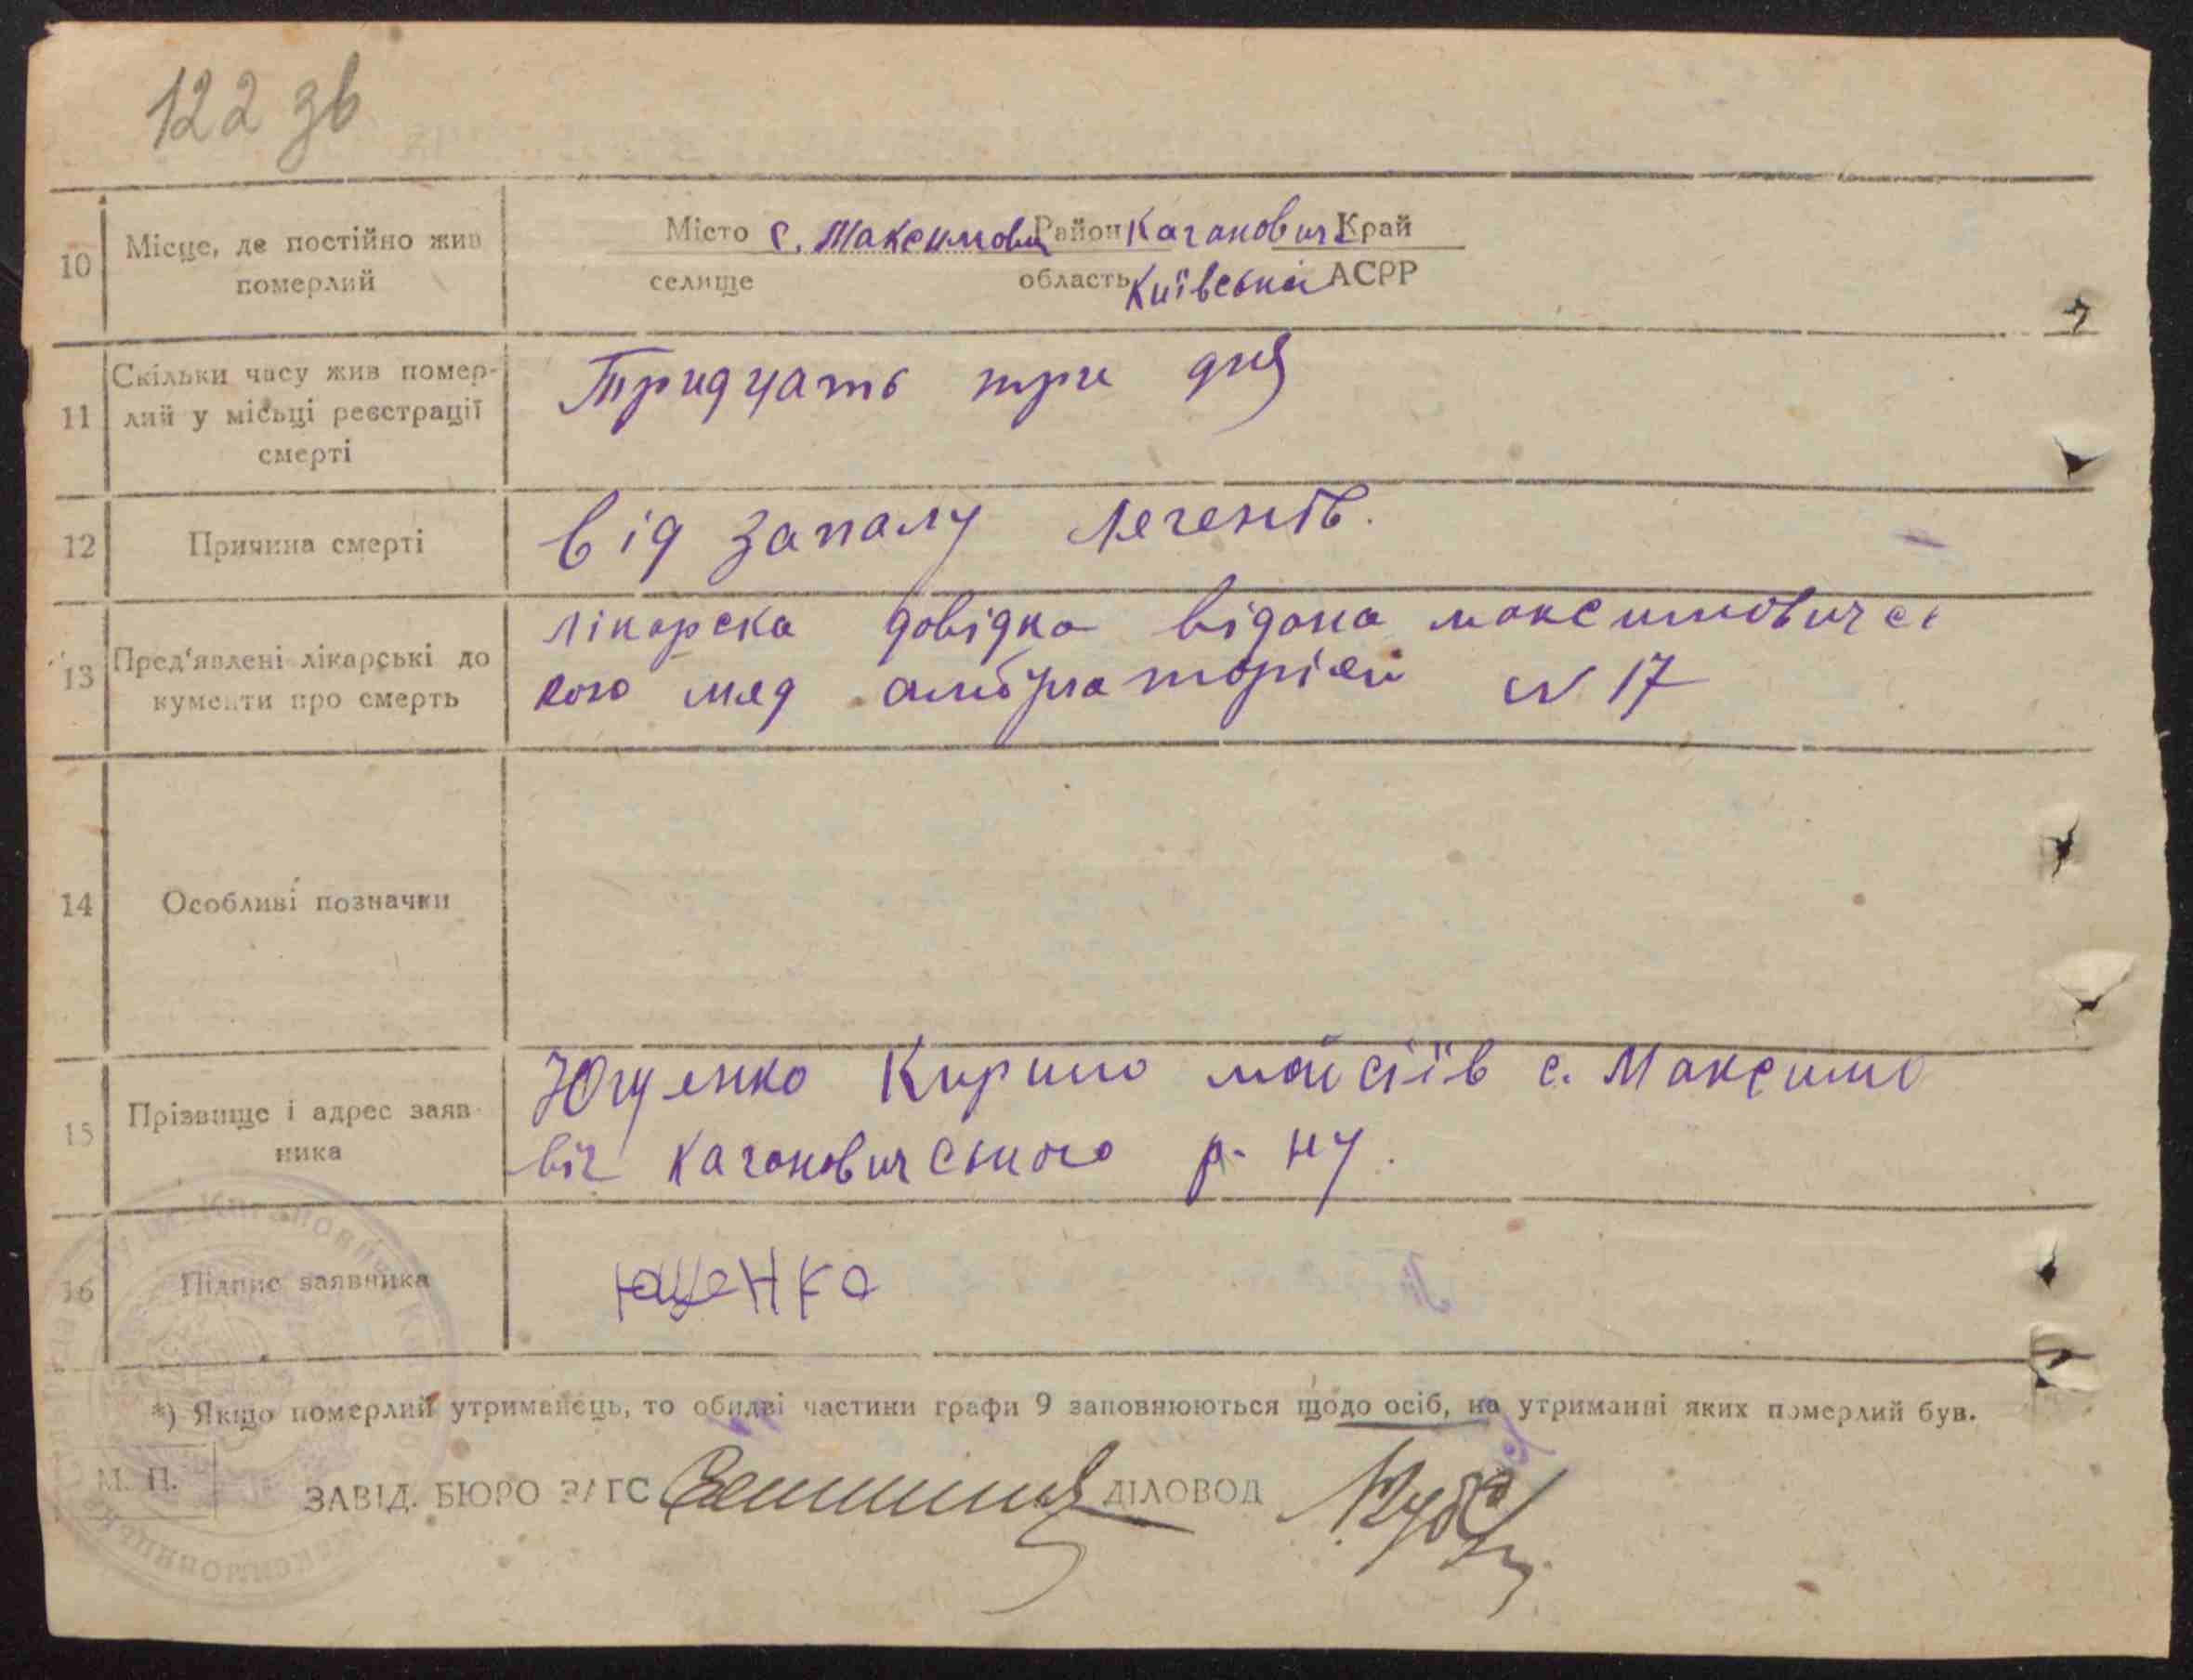 122 зв
10 Місце, де постійно жив померлий
Місто с. Максимови Район Каганович Край
селище область Київська АСРР
11 Скільки часу жив помер-
лий у місьці реєстрації
смерті
Тридцать три дня
12 Причина смерті
Від запалу легенів.
13 Пред'явлені лікарські до
кументи про смерть
лікарска довідка відана максимовичес
кою мед амбулаторієй N 17
14 Особливі позначки
15 Прізвище і адрес заяв-
ника
Ющенко Кирило мойсіїв с. Максимо
віч Кагановичського р-ну.
16 Підпис заявника
ющенко
*) Якщо померлий утриманець, то обидві частини графи 9 заповнюються щодо осіб, на утриманні яких померлий був.
М. П.
ЗАВІД. БЮРО ЗАГС ДІЛОВОД